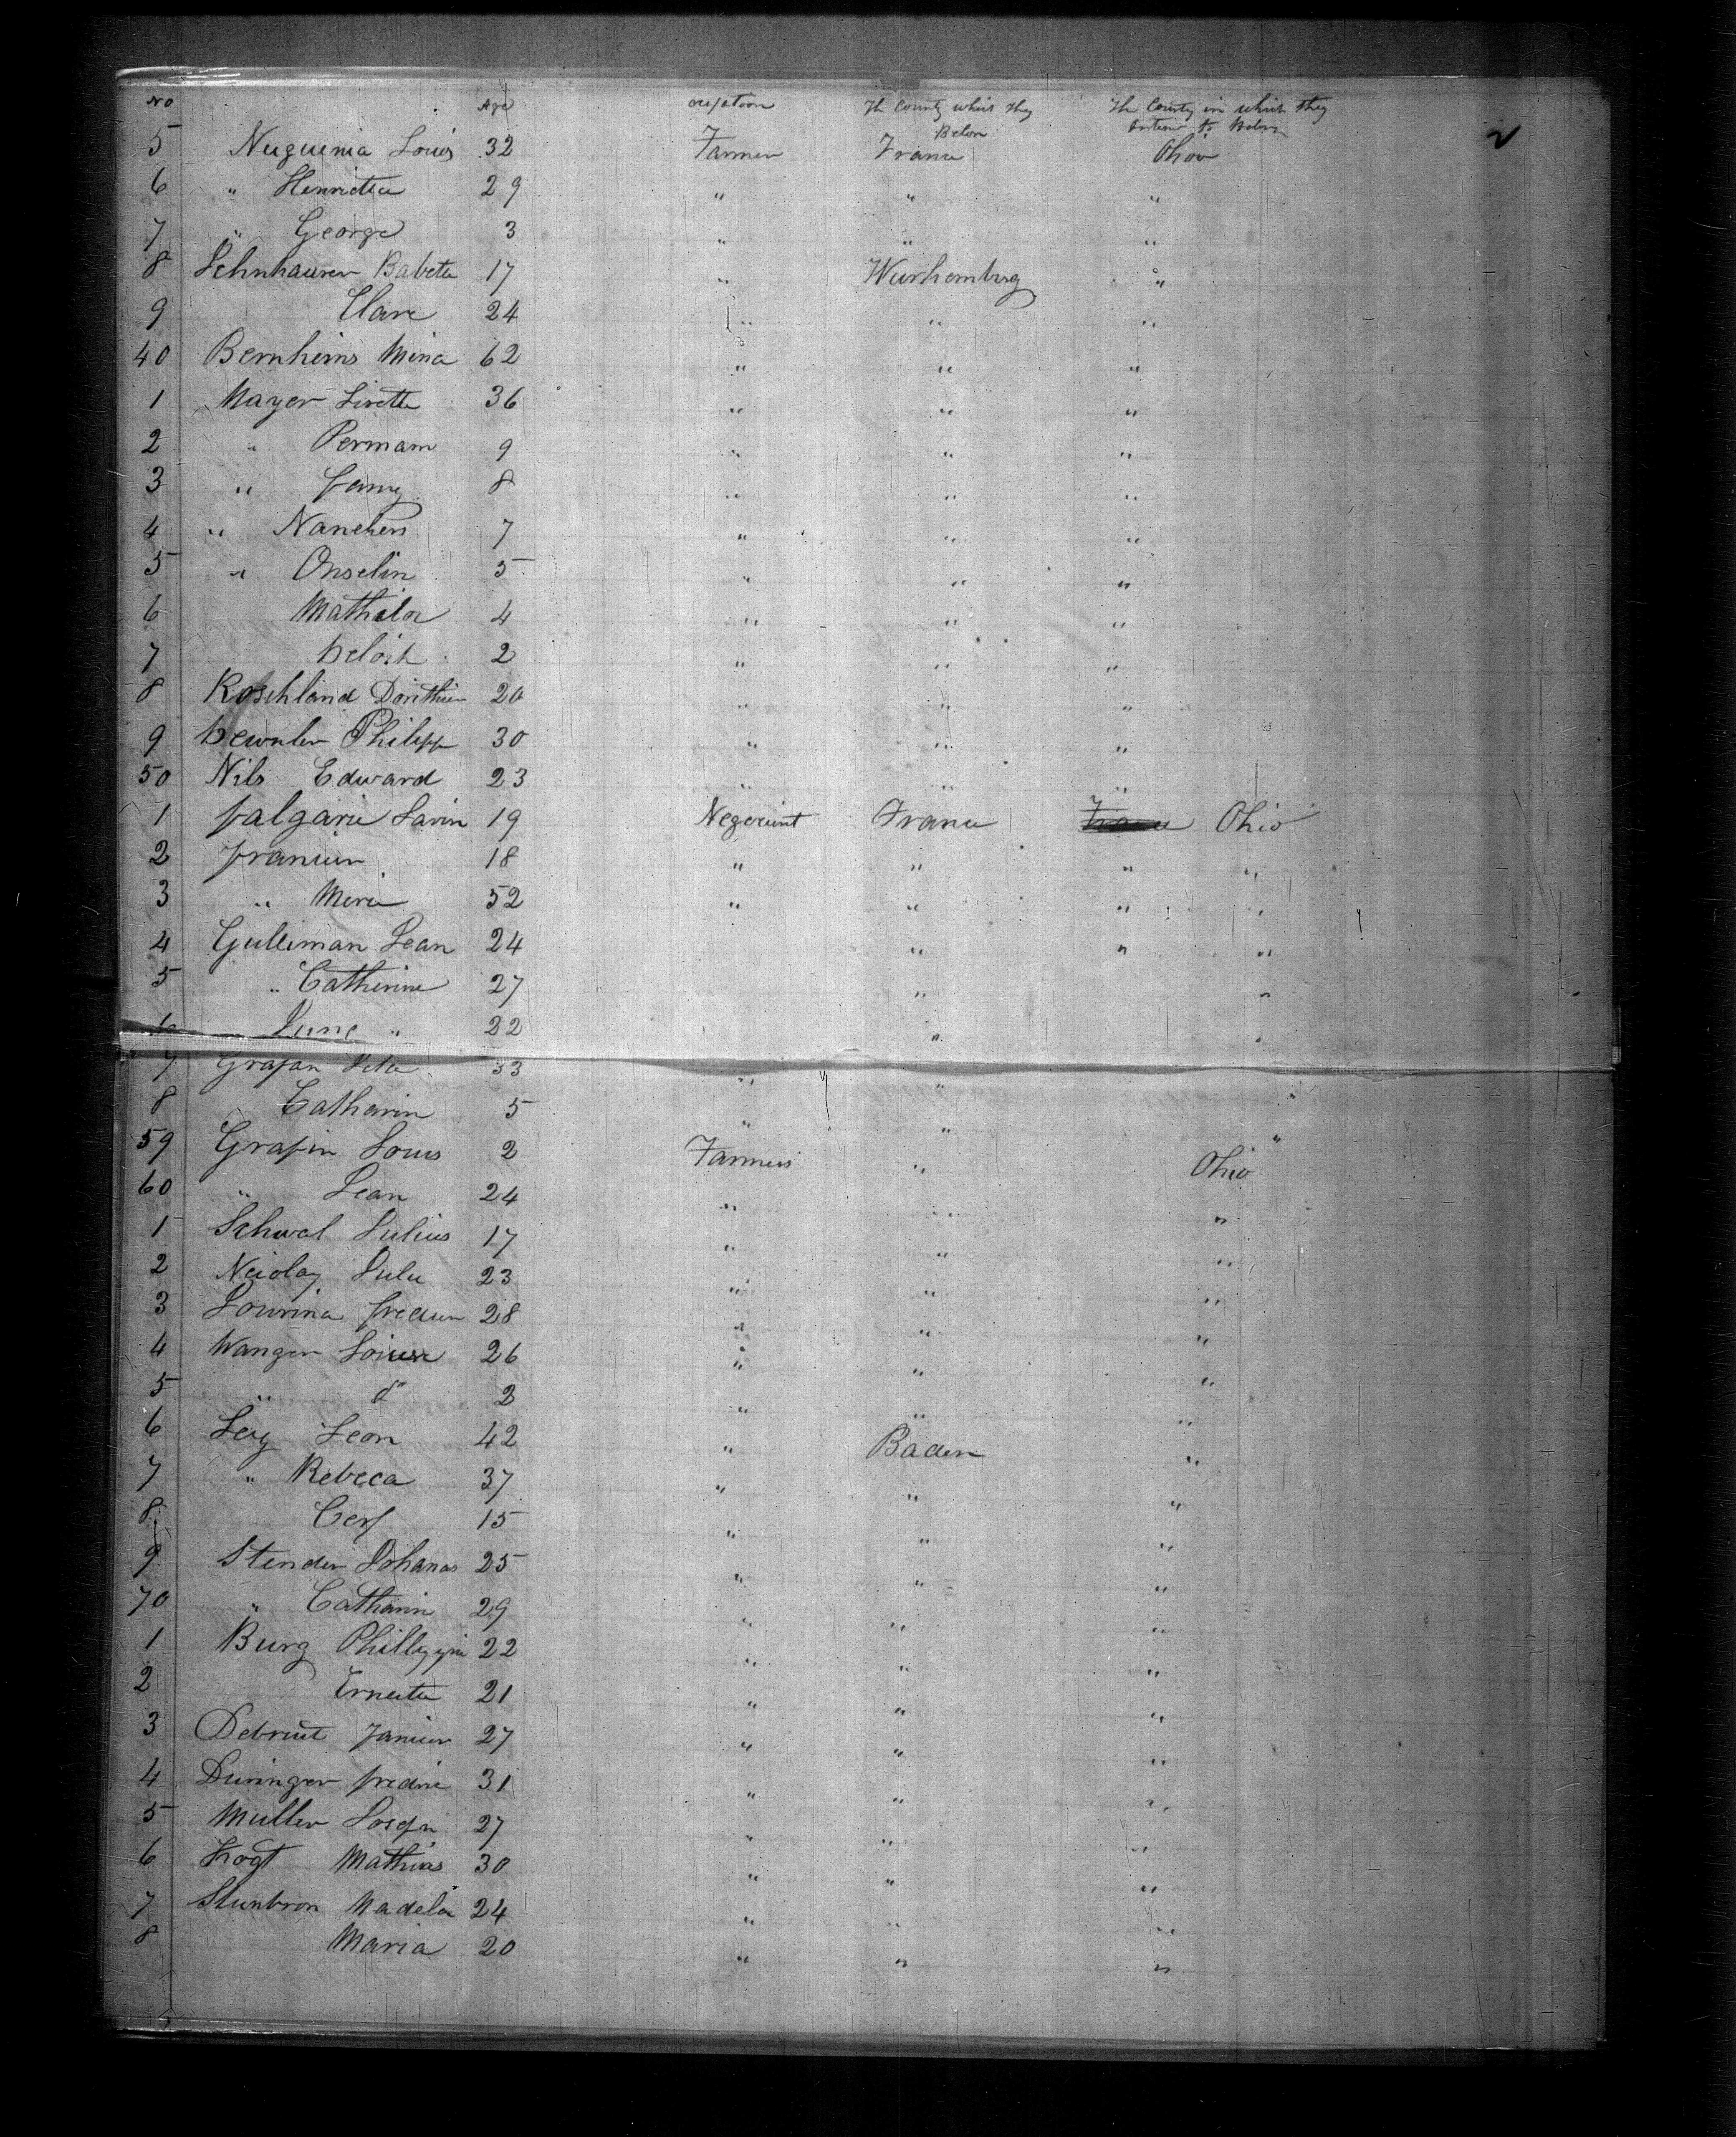 No Age ocupation Th County which they Belon Th County in which they Intend to Belon 2
5 Nuguenia Louis 32 Farmer France Ohio
6 " Henrietta 29 " " "
7 " George 3 " " "
8 Schnhaurer Babeta 17 " Wurhemberg "
9 Clare 24 " " "
40 Bernheims Mina 62 " " "
1 Mayer Lisette 36 " " "
2 " Permam 9 " " "
3 " Fanny 8 " " "
4 " Nanchen 7 " " "
5 " Onselin 5 " " "
6 Mathilde 4 " " "
7 2 " " "
8 Roschland Dorithien 20 " " "
9 Philipp 30 " " "
50 Nils Edward 23 " " "
1 falgarie Savin 19 Negocient France France Ohio
2 francien 18 " " " "
3 " Merie 52 " " " "
4 Gulliman Jean 24 " " "
5 " Catherine 27 " "
6 June " 22 " "
7 Grafan 33 " "
8 Catharin 5 " " "
59 Grafin Louis 2 Farmers " Ohio
60 " Jean 24 " " "
1 Schwab Julius 17 " " "
2 Neiolay Julu 23 " " "
3 Lowrina 28 " " "
4 Wanger Louise 26 " " "
5 " do 2 " " "
6 Levy Leon 42 " Baden "
7 " Rebeca 37 " " "
8 Cerf 15 " " "
9 Stender Johanas 25 " " "
70 " Catharin 29 " " "
1 Burg 22 " " "
2 Ernestu 21 " " "
3 27 " " "
4 Duringer fredrie 31 " " "
5 Muller Josefn 27 " " "
6 Mathias 30 " " "
7 Stunbron Madela 24 " " "
8 Maria 20 " " "